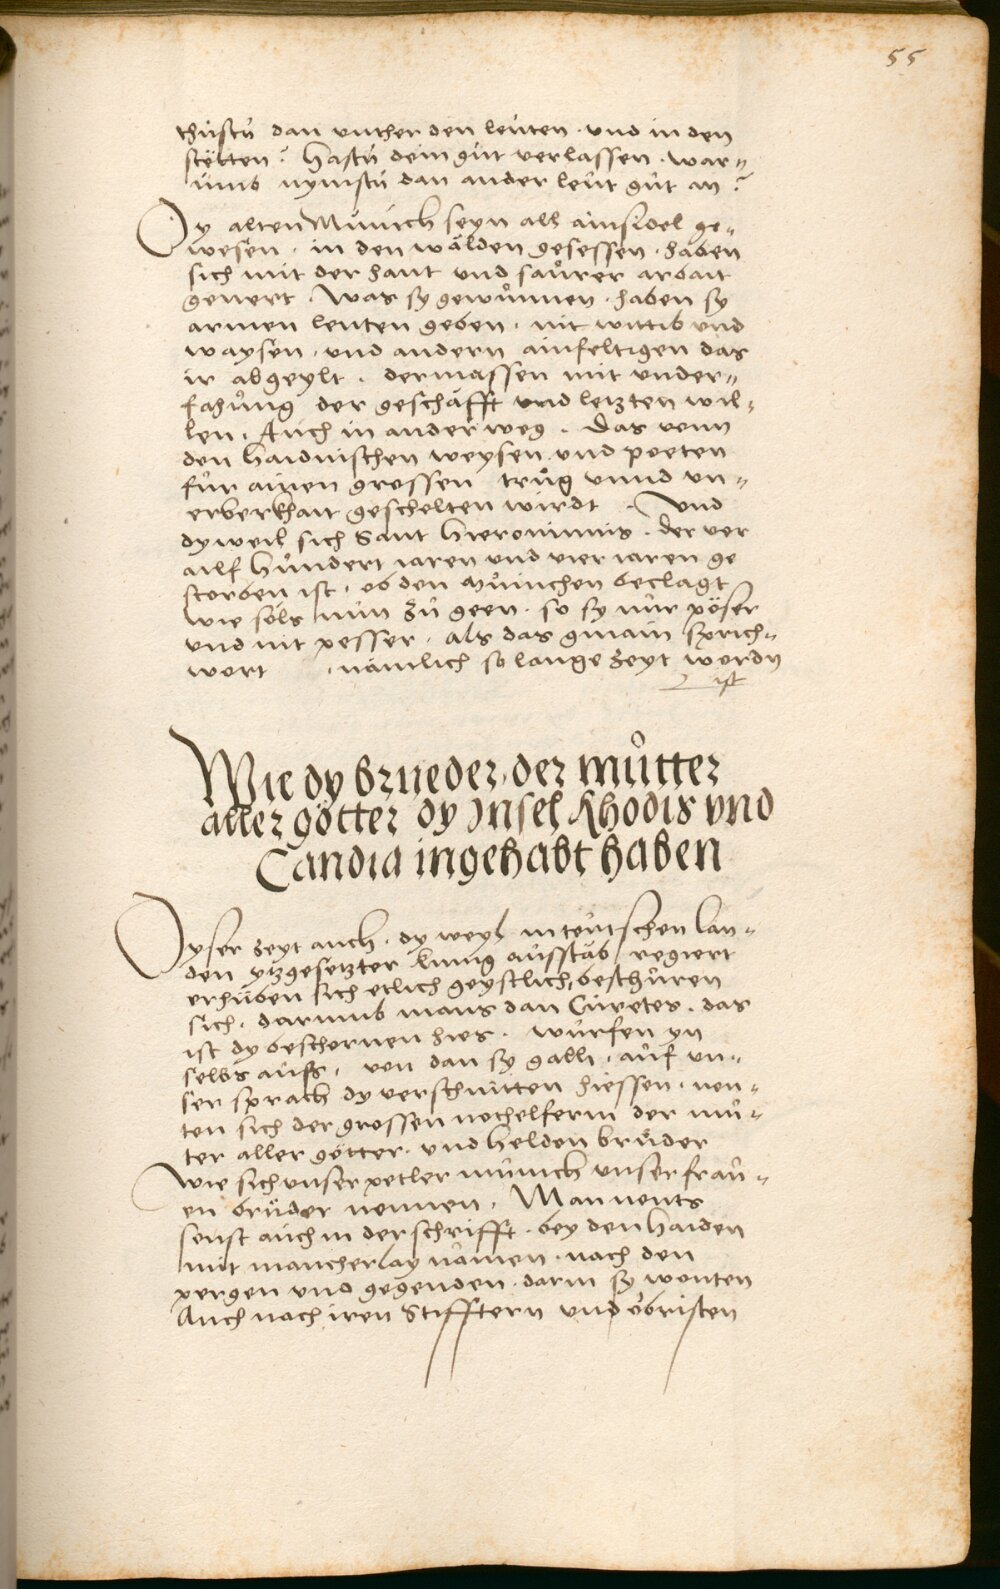 55
thůstu dan vnther den leuten · vnd in den
stëtten? Hastu dein gut verlassen · war=
umb nymstu dan ander leut gůt an?
Dy alten Münich seyn all ainsidel ge=
wesen · in den wälden gesessen · haben
sich mit der hant vnd saůrer arbait
genert · Was sy gewůnnen · haben sy
armen leuten geben · nit wittib vnd
waysen · vnd andern ainfeltigen das
ir abgeylt · dermassen mit vnder=
fahůng der geschäfft vnd letzten wil=
len · Auch in ander weg · Das vonn
den haidnischen weysen vnd poeten
für ainen grossen trůg vnnd vn=
erberkhait geschelten wirdt · Vnd
dyweil sich Sant Hieronimus · der vor
ailf hůndert iaren vnd vier iaren ge
storben ist · ob den Můnchen beclagt
wie sols nun zů geen · so sy nůr pöser
vnd nit pesser · als das gmain sprich=
wort · nämlich so lange zeyt wordn
ist
Wie dy brueder der můtter
aller götter dy Insel Rhodis vnd
Candia ingehabt haben
Dyser zeyt auch · dy weyl in teutschen lan=
den ytzgesetzter kunig ausstäb regiert
erhůben sich etlich geystlich, beschůren
sich · darumb mans dan Curetes · das
ist dy beschornen hies · wurfen yn
selbs auss · von dan sy galli · auf vn=
ser sprach dy verschnitten hiessen · nen=
ten sich der grossen nothelferin der mů=
ter aller götter · vnd helden brůder
Wie sich vnser petler münich vnser frau=
en brüder nennen · Man nents
sonst auch in der schrifft · bey den haiden
mit mancherlay namen · nach den
pergen vnd gegenden · darin sy wonten
Auch nach iren Stifftern vnd öbristen